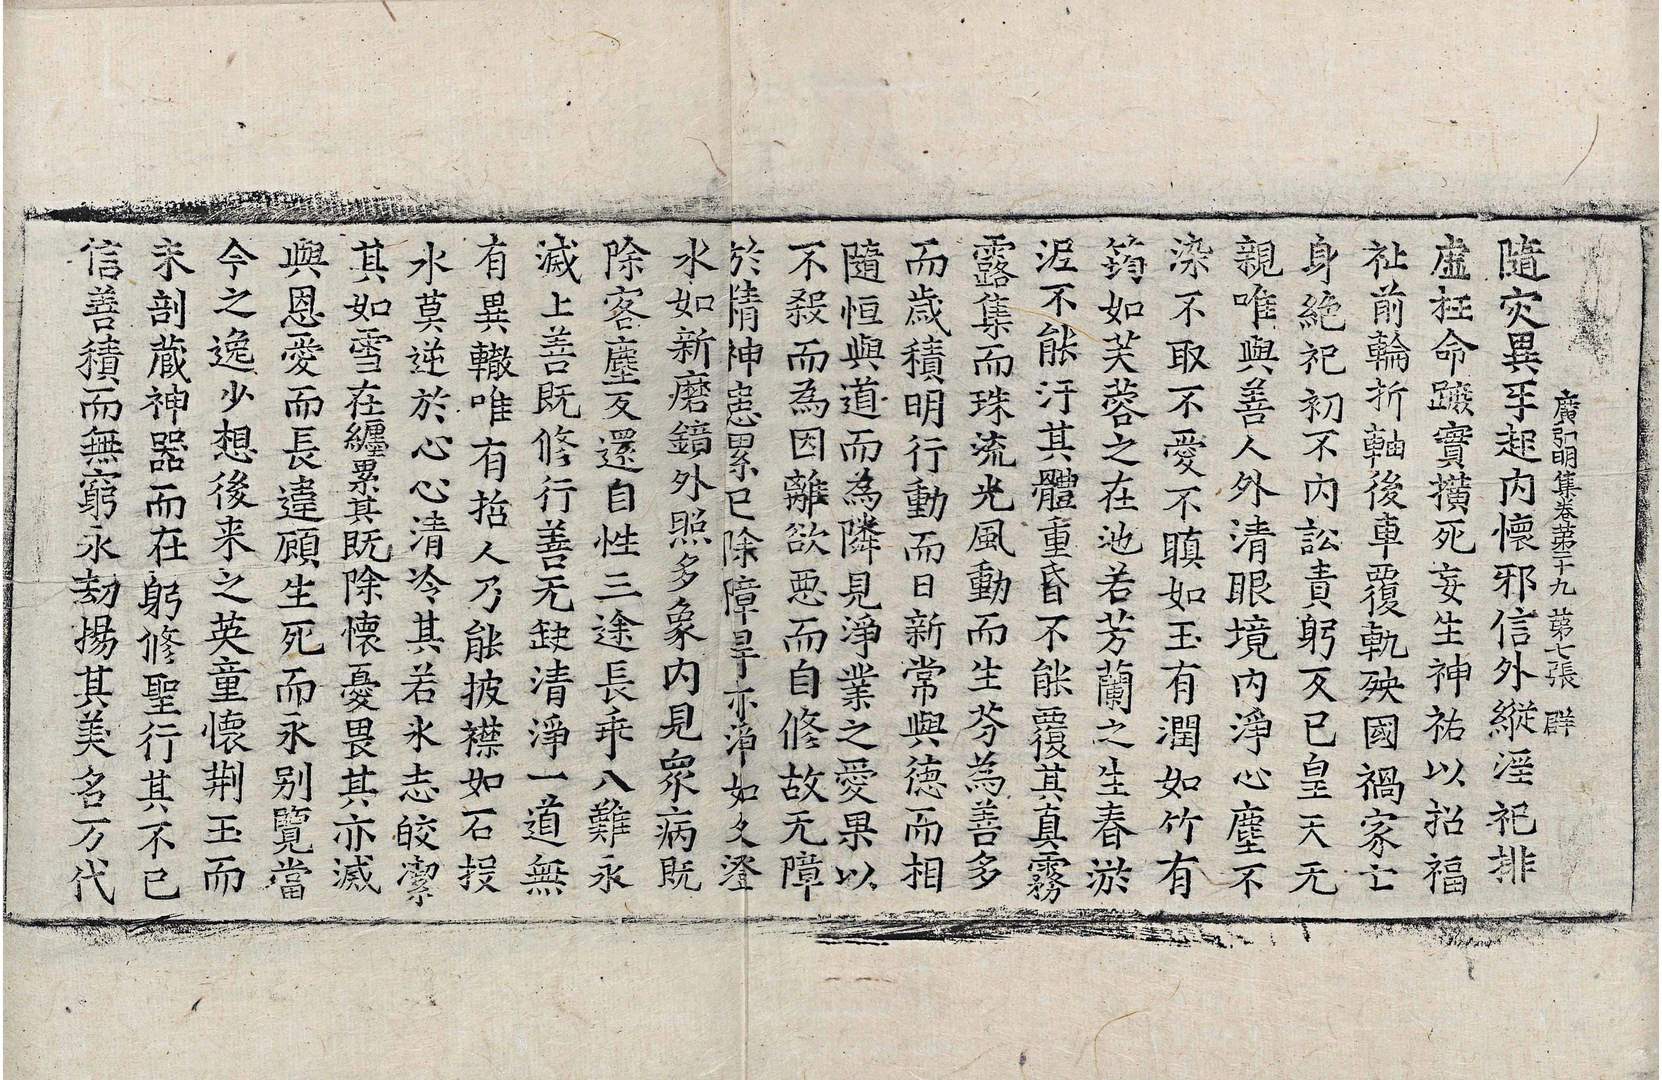 廣弘明集卷第二十九 第七張 群
隨灾異乎起内懷邪信外縱淫祀排
虛枉命蹝實撗死妄生神祐以招福
祉前輪折軸後車覆軌殃國禍家亡
身絶祀初不内訟責躬反已皇天无
親唯與善人外清眼境内淨心塵不
染不取不愛不瞋如玉有潤如竹有
筠如芙蓉之在池若芳蘭之生春淤
泥不能汙其體重昏不能覆其真霧
露集而珠流光風動而生芬為善多
而歳積明行動而日新常與德而相
隨恒與道而為隣見淨業之愛果以
不殺而為因離欲惡而自修故无障
於精神患累已除障㝵亦淨如久澄
水如新磨鏡外照多象内見衆病既
除客塵反還自性三途長乖八難永
滅上善既修行善无缺清淨一道無
有異轍唯有哲人乃能披襟如石投
水莫逆於心心清冷其若氷志皎潔
其如雪在纏累其既除懷憂畏其亦滅
與恩愛而長違顧生死而永别覽當
今之逸少想後来之英童懷荆玉而
未剖蔵神器而在躬修聖行其不已
信善積而無窮永劫揚其美名万代